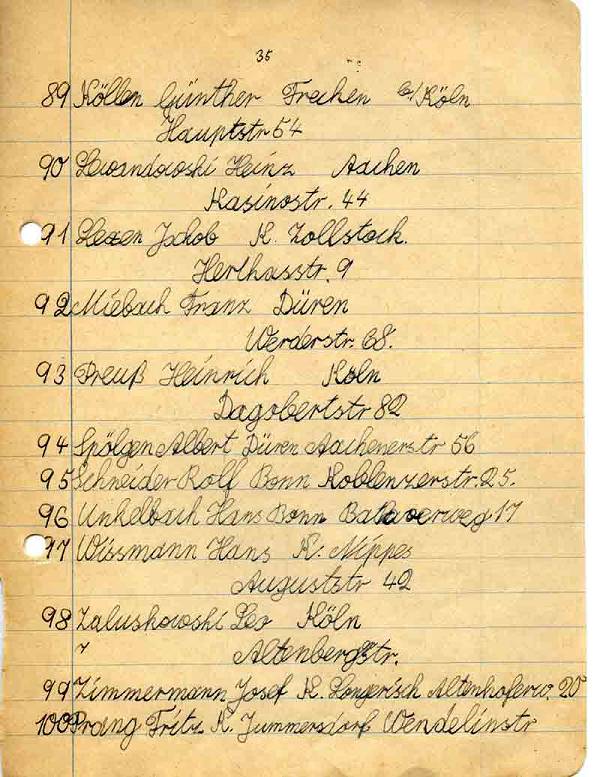 35
89 Köllen Günther Frechen b/Köln
Hauptstr 54
90 Lewandowski Heinz Aachen
Kasinostr. 44
91 Lexen Jakob K. Zollstock.
Herthastr. 9
92 Miebach Franz Düren
Werderstr. 68.
93 Preuß Heinrich Köln
Dagobertstr 82
94 Spölgen Albert Düren Aachenerstr 56
95 Schneider Rolf Bonn Koblenzerstr. 25.
96 Unkelbach Hans Bonn 17
97 Wissmann Hans K. Nippes
Auguststr 42
98 Zalushowski Leo Köln
Altenbergstr.
99 Zimmermann Josef K. Longerisch Altenhoferw. 20
100 Prang Fritz K. Junmersdorf Wendelinstr